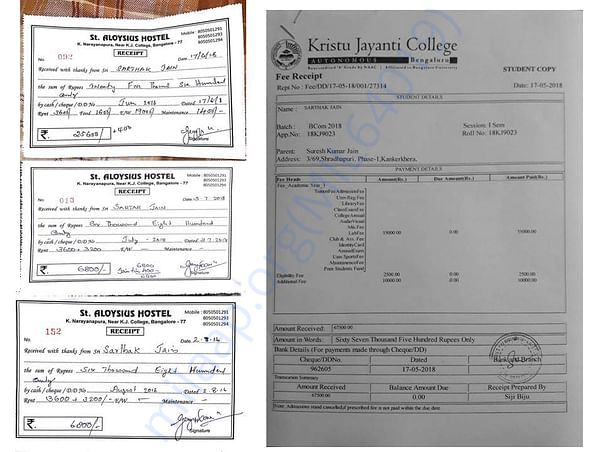 St. ALOYSIUS HOSTEL
Mobile : 8050501291
8050501293
8050501294
K. Narayanapura, Near K.J. College, Bangalore - 77
RECEIPT
No. 092
Date 17/6/18
Received with thanks from Sri SARTHAK JAIN
the sum of Rupees Twenty Five Thous Six Hundred
only
by cash / cheque / D.D.No. June 2018 Dated 17/6/18
Rent
₹. 25600/-
Signature
St. ALOYSIUS HOSTEL
Mobile : 8050501291
8050501293
8050501294
K. Narayanapura, Near K.J. College, Bangalore - 77
RECEIPT
No. 013
Received with thanks from Sri SARTAK JAIN
the sum of Rupees Six Thousand Eight Hundred
only
by cash / cheque / D.D.No. July - 2018 Dated
Rent 3600 + 3200 E/W — Maintenance —
₹. 6800/-
Signature
St. ALOYSIUS HOSTEL
Mobile : 8050501291
8050501293
8050501294
K. Narayanapura, Near K.J. College, Bangalore - 77
RECEIPT
No. 152
Received with thanks from Sri Sarthak Jain
the sum of Rupees Six Thousand Eight Hundred
only
by cash / cheque / D.D.No. August
Rent 3600 + 3200/- E/W Maintenance
₹.
Signature
Kristu Jayanti College
AUTONOMOUS Bengaluru
Fee Receipt
STUDENT COPY
Rept No : Fee/DD/17-05-18/001/27314
Date: 17-05-2018
STUDENT DETAILS
Name : SARTHAK JAIN
Batch : BCom 2018
Session: I Sem
App.No: 18KJ9023
Roll No: 18KJ9023
Parent: Suresh Kumar Jain
Address: 3/69,Shradhapuri. Phase-1,Kankerkhera.
PAYMENT DETAILS
Fee Heads Amount(Rs.) Due Amount(Rs.) Amount Paid(Rs.)
Fee_Academic Year_1
TuitionFeeAdmissionFee
Univ.Reg.Fee
LibraryFee
CollegeAnnual
AudioVisual
Mis.Fee
LabFee 55000.00 0.00 55000.00
Club & Ass. Fee
IdentityCard
AnnualExam
Univ.SportsFee
MaintanenceFee
Poor Students Fund
Eligibility Fee 2500.00 0.00 2500.00
Additional Fee 10000.00 0.00 10000.00
Amount Received: 67500.00
Amount in Words: Sixty Seven Thousand Five Hundred Rupees Only
Bank Details (For payments made through Cheque/DD)
Cheque/DDNo. Date Bank and Branch
962605 17-05-2018
Transcation Summary
Amount Received Balance Amount Due Receipt Prepared By
67500.00 0.00 Siji Biju
Note: Admissions stand cancelled,if prescribed fee is not paid within the due date.